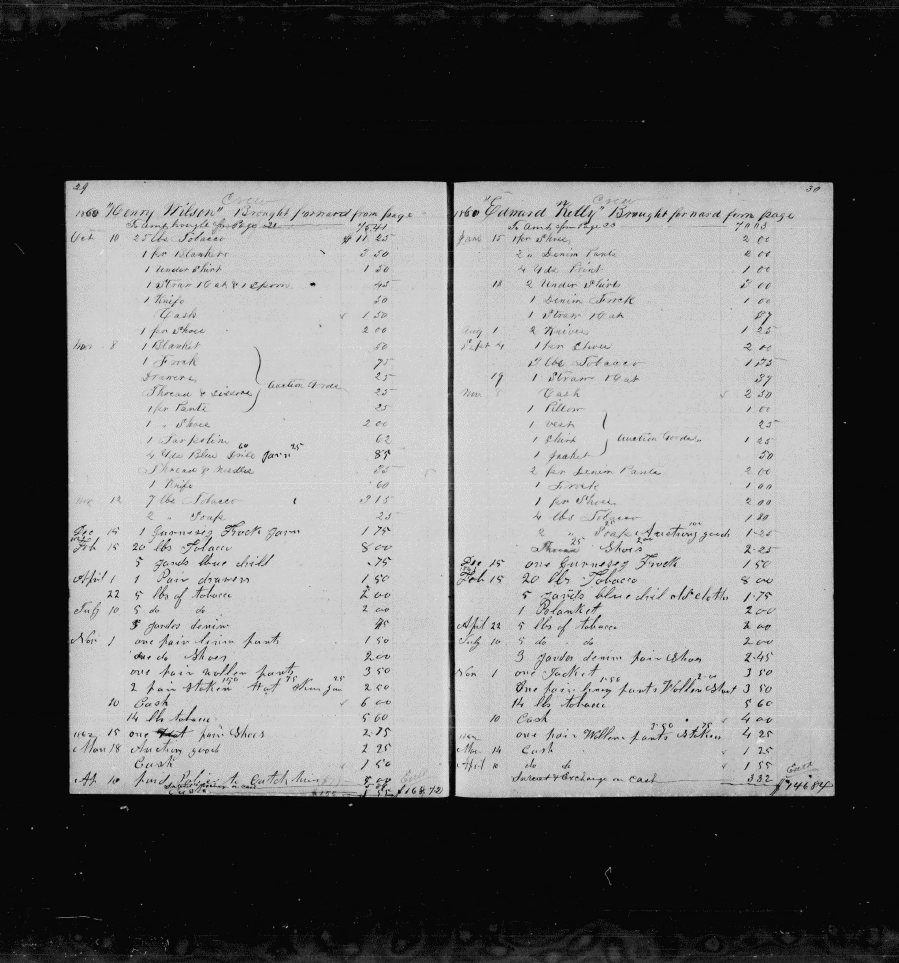 29
Crew
1860 "Henry Wilson" Brought forward from page
To Amt. brought from Page 21 75 41
Oct 10 25 lbs Tobacco $ 11 25
1 pr Blankets 3 50
1 Under Shirt 1 50
1 Straw Hat & 1 Spoon 45
1 Knife 50
Cash 1 50
1 pr Shoes 2 00
Nov 8 1 Blanket 50
1 Frock 75
Drawers 25
Thread & scissors Auction Goods 25
1 pr Pants 25
1 " Shoes 2 00
1 Tarpolin 62
4 Yds Blue Drill 60 yarn 25 85
Thread & needles 35
1 Knife 60
12 7 lbs Tobacco 3 15
2 " Soap 25
Dec 15 1 Gurnesey Frock yarn 1 75
Feb 15 20 lbs Tobacco 8 00
5 yards blue drill .75
April 1 1 Pair drawers 1 50
22 5 lbs of tobacco 2 00
July 10 5 do do 2 00
3 yardes denim 45
Nov 1 one pair pants 1 50
one do Shoes 2 00
one pair wollen pants 3 50
2 pair stoken 1.50 Hat 75 25 2 50
10 Cash 6 00
14 lbs tobacco 5 60
15 one pair Shoes 2 75
Mar 18 Auction goods 2 25
Cash 1 50
Ap 10 paid to 5 00
$168.72
30
Crew
1860 "Edward Kelly" Brought forward form page
To Amt. from Page 70 03
June 15 1 pr Shoes 2 00
2 " Denim Pants 2 00
4 Yds Print 1 00
18 2 Under Shirts 3 00
1 Denim Frock 1 00
1 Straw Hat 37
Aug 1 2 Knives 1 25
Sept 4 1 pr Shoes 2 00
3 lbs Tobacco 1 35
19 1 Straw Hat 37
Nov Cash 2 50
1 Pillow 1 00
1 vest 25
1 Shirt Auction Goods 1 25
1 Jacket 50
2 pr Denim Pants 2 00
1 Frock 1 00
1 pr Shoes 2 00
4 lbs Tobacco 1 80
2 " Soap 25 Aucting goods 100 1.25
25 Shoes 200 2.25
Dec 15 one Gurnesey Frock 1 50
Feb 15 20 lbs Tobacco 8 00
5 blue dril 1.75
1 Blanket 2 00
April 22 5 lbs of tobacco 2 00
July 10 5 do do 2 00
3 yardes denim pair Shoes 2.45
Nov 1 one Jacket 3 50
One pair pants 1.50 Wollen Shirt 2.00 3 50
14 lbs tobacco 5 60
10 Cash 4 00
one pair Wollen pants 3.50 Stoken 75 4 25
Mar 14 Cash 1 25
April 10 do do 1 55
Intrest & Exchange on cash 3 32
$146 84